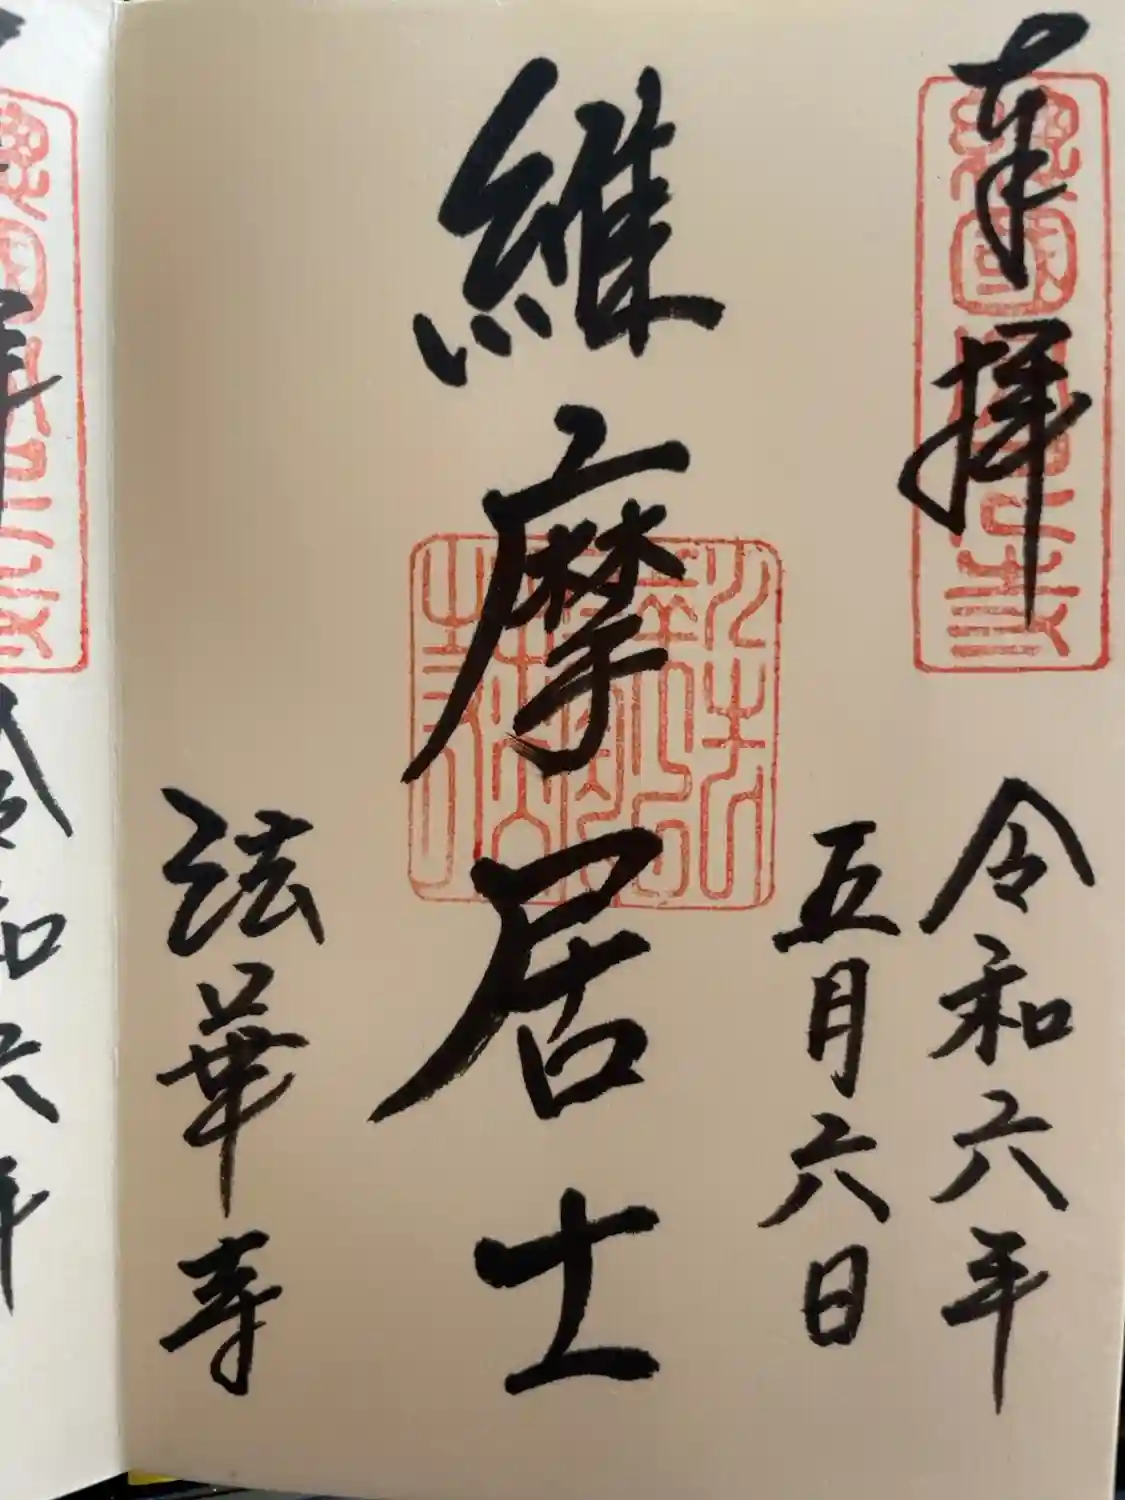 奉拝
令和六年
五月六日
維摩居士
法華寺
令和六年